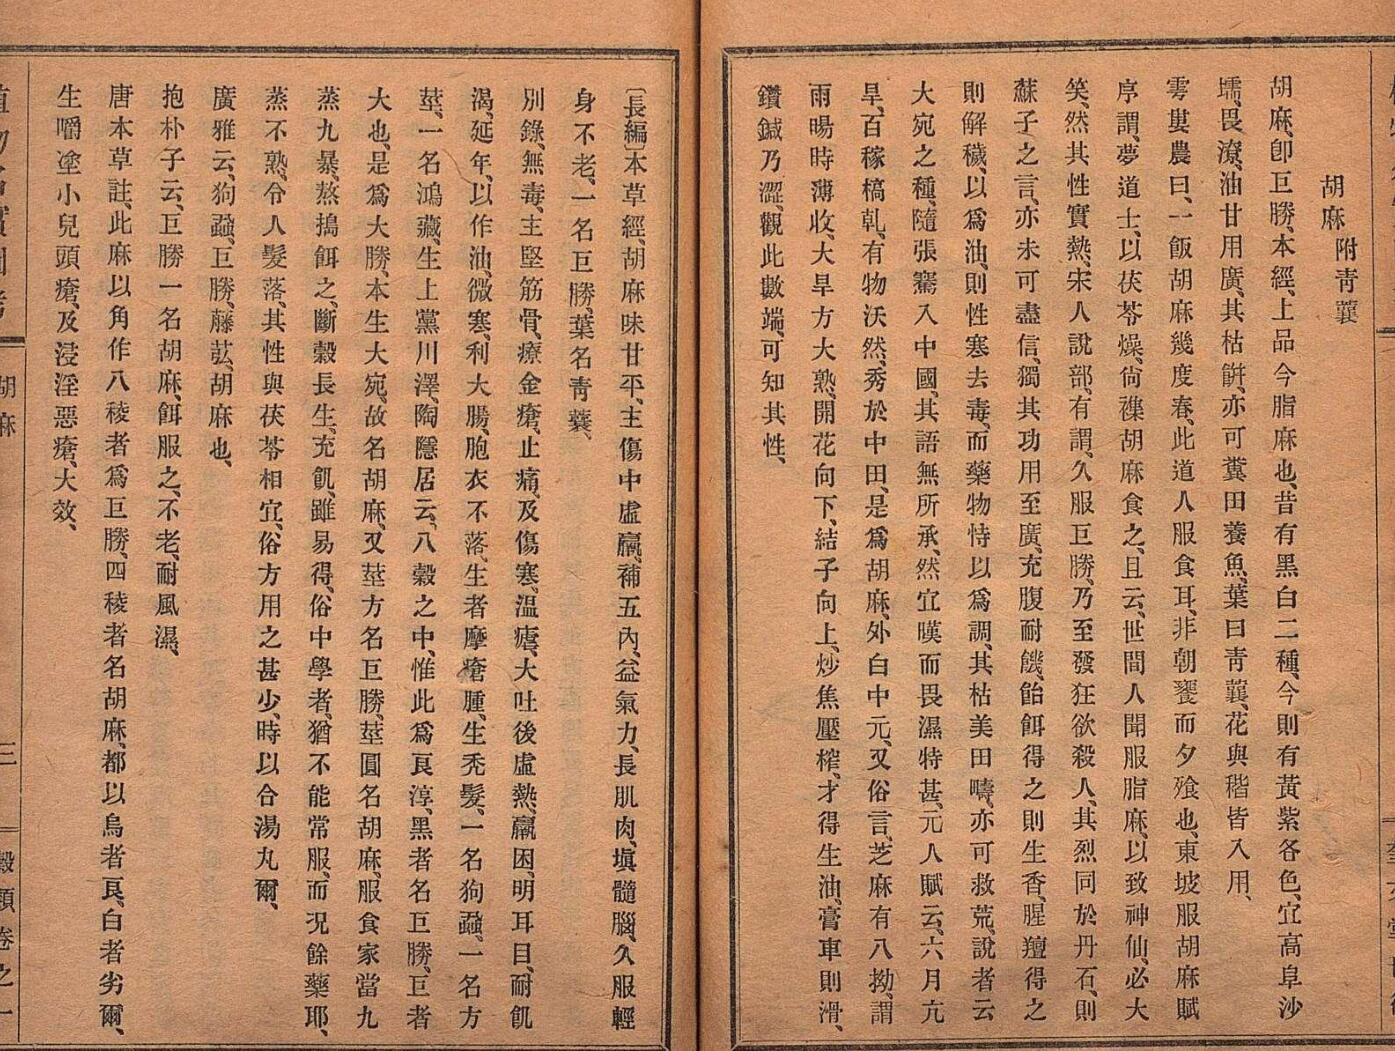 胡麻附靑蘘
胡麻、卽巨勝、本經、上品今脂麻也、昔有黑白二種、今則有黃紫各色、宜高阜沙
壖、畏潦、油甘用廣、其枯餅、亦可糞田養魚、葉曰靑蘘、花與稭皆入用、
雩婁農曰、一飯胡麻幾度春、此道人服食耳、非朝饔而夕飱也、東坡服胡麻賦
序謂、夢道士、以茯苓燥、尙襍胡麻食之、且云、世間人聞服脂麻、以致神仙、必大
笑、然其性實熱、宋人說部、有謂、久服巨勝、乃至發狂欲殺人、其烈同於丹石、則
蘇子之言、亦未可盡信、獨其功用至廣、充腹耐饑、飴餌得之則生香、腥羶得之
則解穢、以爲油、則性寒去毒、而藥物恃以爲調、其枯美田疇、亦可救荒、說者云
大宛之種、隨張騫入中國、其語無所承、然宜暵而畏濕特甚、元人賦云、六月亢
旱、百稼槁乹、有物沃然、秀於中田、是爲胡麻、外白中元、又俗言、芝麻有八拗、謂
雨暘時薄收、大旱方大熟、開花向下、結子向上、炒焦壓榨、才得生油、膏車則滑、
鑽鍼乃澀、觀此數端、可知其性、
〔長編〕本草經、胡麻味甘平、主傷中虛羸、補五內、益氣力、長肌肉、塡髓腦、久服輕
身不老、一名巨勝、葉名靑蘘、
別錄、無毒、主堅筋骨、療金瘡、止痛、及傷寒、溫瘧、大吐後虛熱、羸困、明耳目、耐飢
渴、延年、以作油、微寒、利大腸、胞衣不落、生者摩瘡腫、生禿髮、一名狗蝨、一名方
莖、一名鴻藏、生上黨川澤、陶隱居云、八穀之中、惟此爲良、淳、黑者名巨勝、巨者
大也、是爲大勝、本生、大宛、故名胡麻、又莖方名巨勝、莖圓名胡麻、服食家當九
蒸九暴、熬搗餌之、斷穀長生、充飢、雖易得、俗中學者、猶不能常服、而況餘藥耶、
蒸不熟、令人髮落、其性與茯苓相宜、俗方用之甚少、時以合湯丸爾、
廣雅云、狗蝨、巨勝、藤苰、胡麻也、
抱朴子云、巨勝一名胡麻、餌服之、不老、耐風濕、
唐本草註、此麻以角作八稜者爲巨勝、四稜者名胡麻、都以烏者良、白者劣爾、
生嚼塗小兒頭瘡、及浸淫惡瘡、大效、
胡麻
三
穀類卷之一